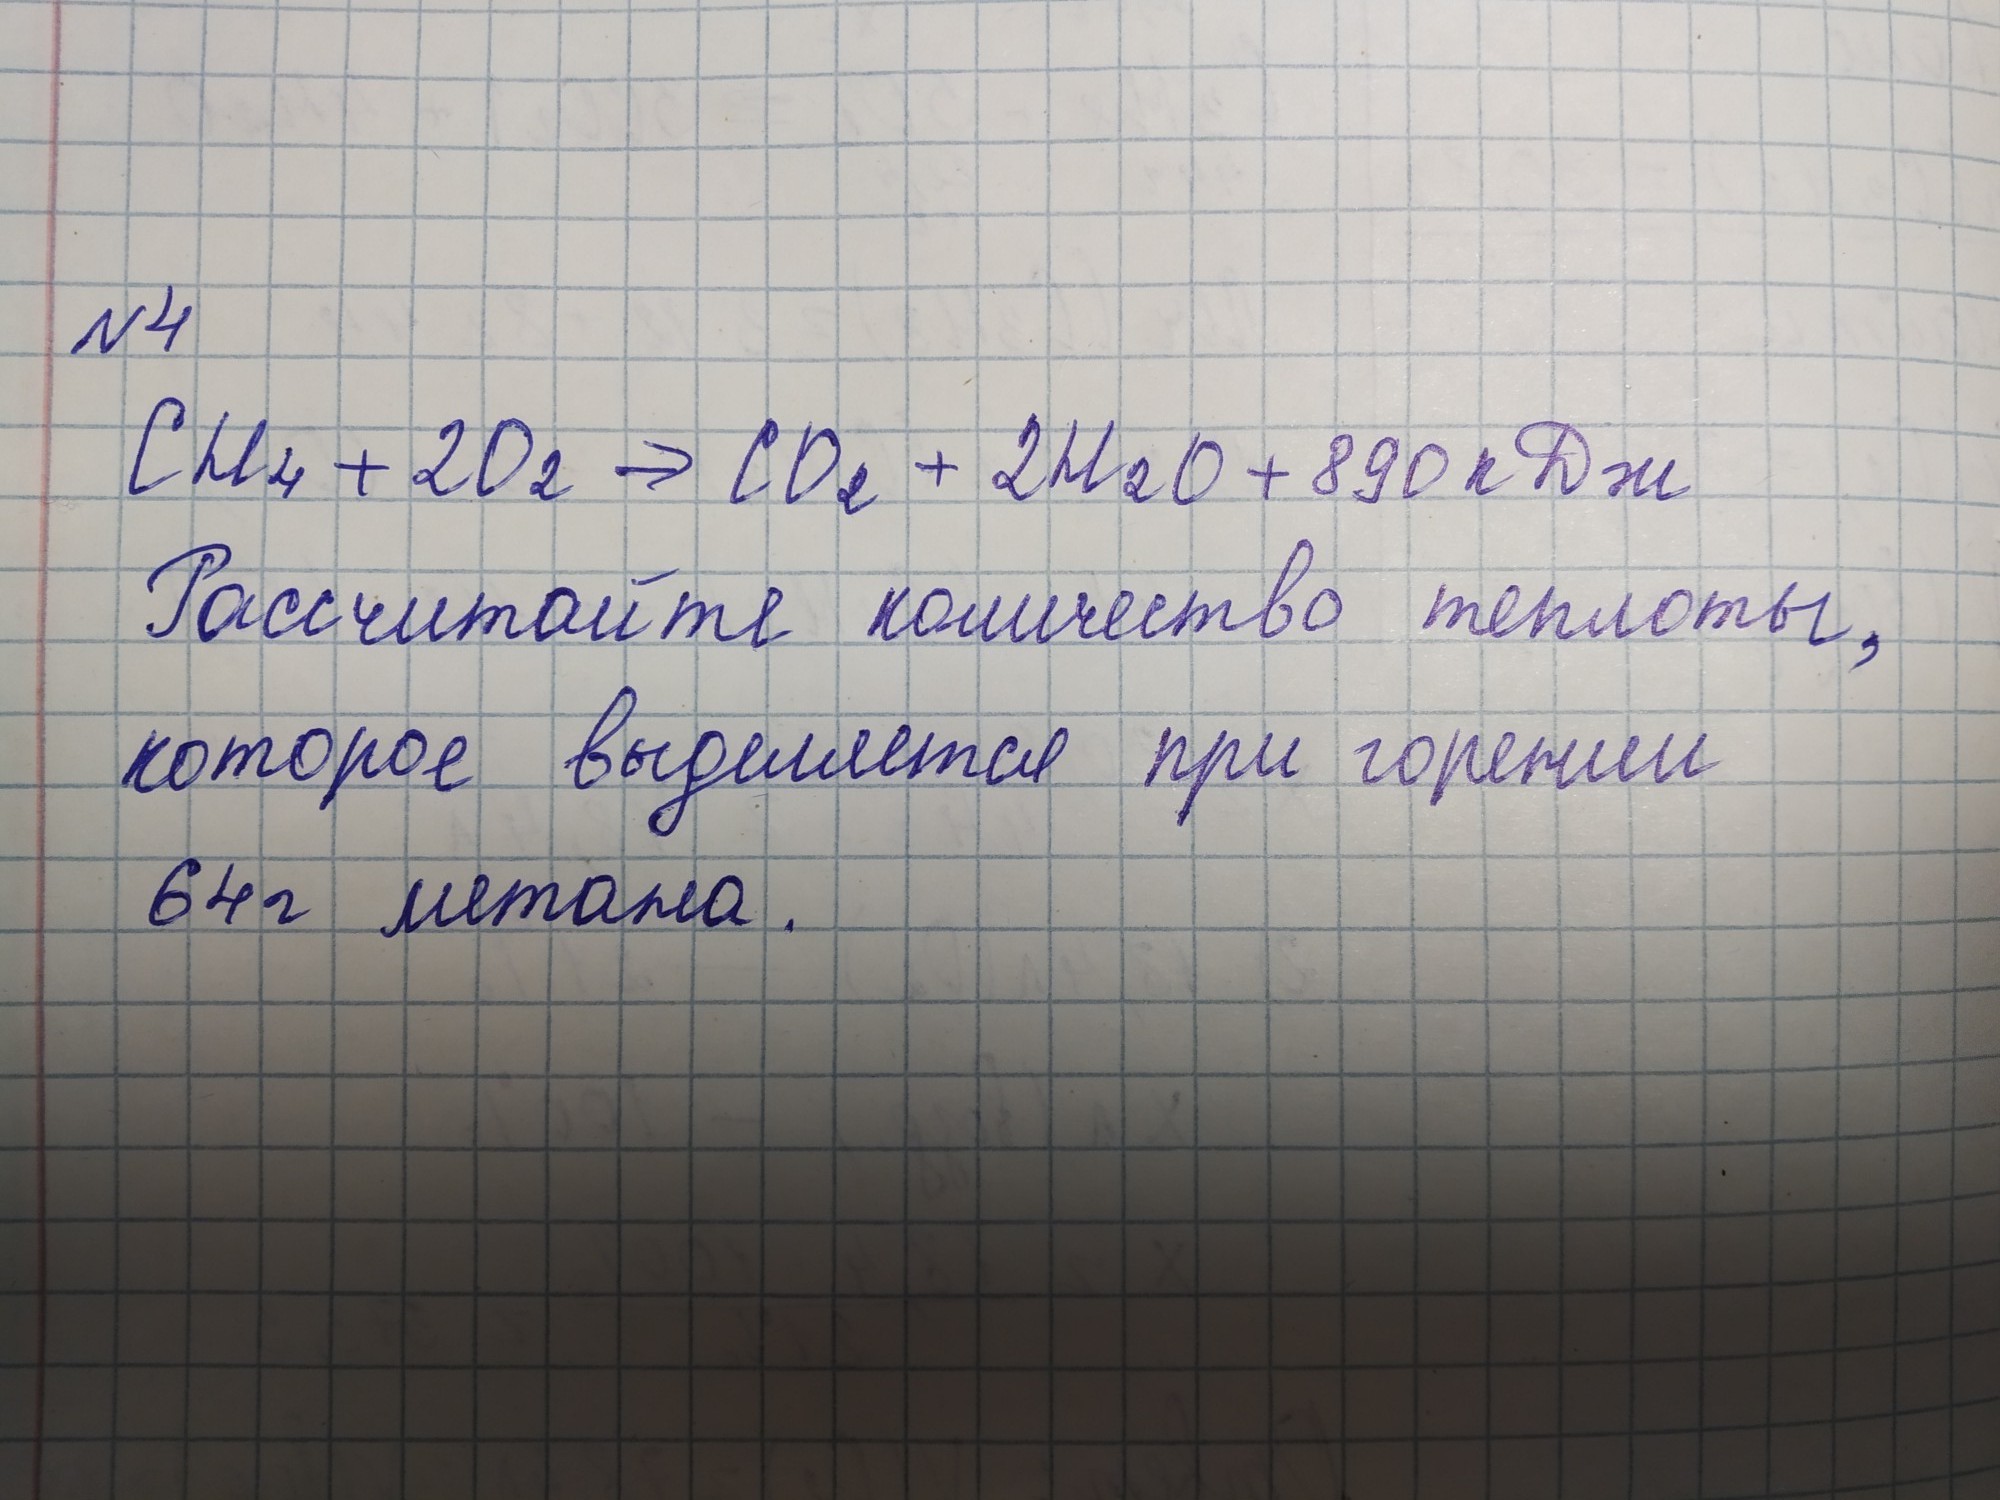 №4
CH₄ + 2O₂ → CO₂ + 2H₂O + 890кДж
Рассчитайте количество теплоты,
которое выделяется при горении
64г метана.